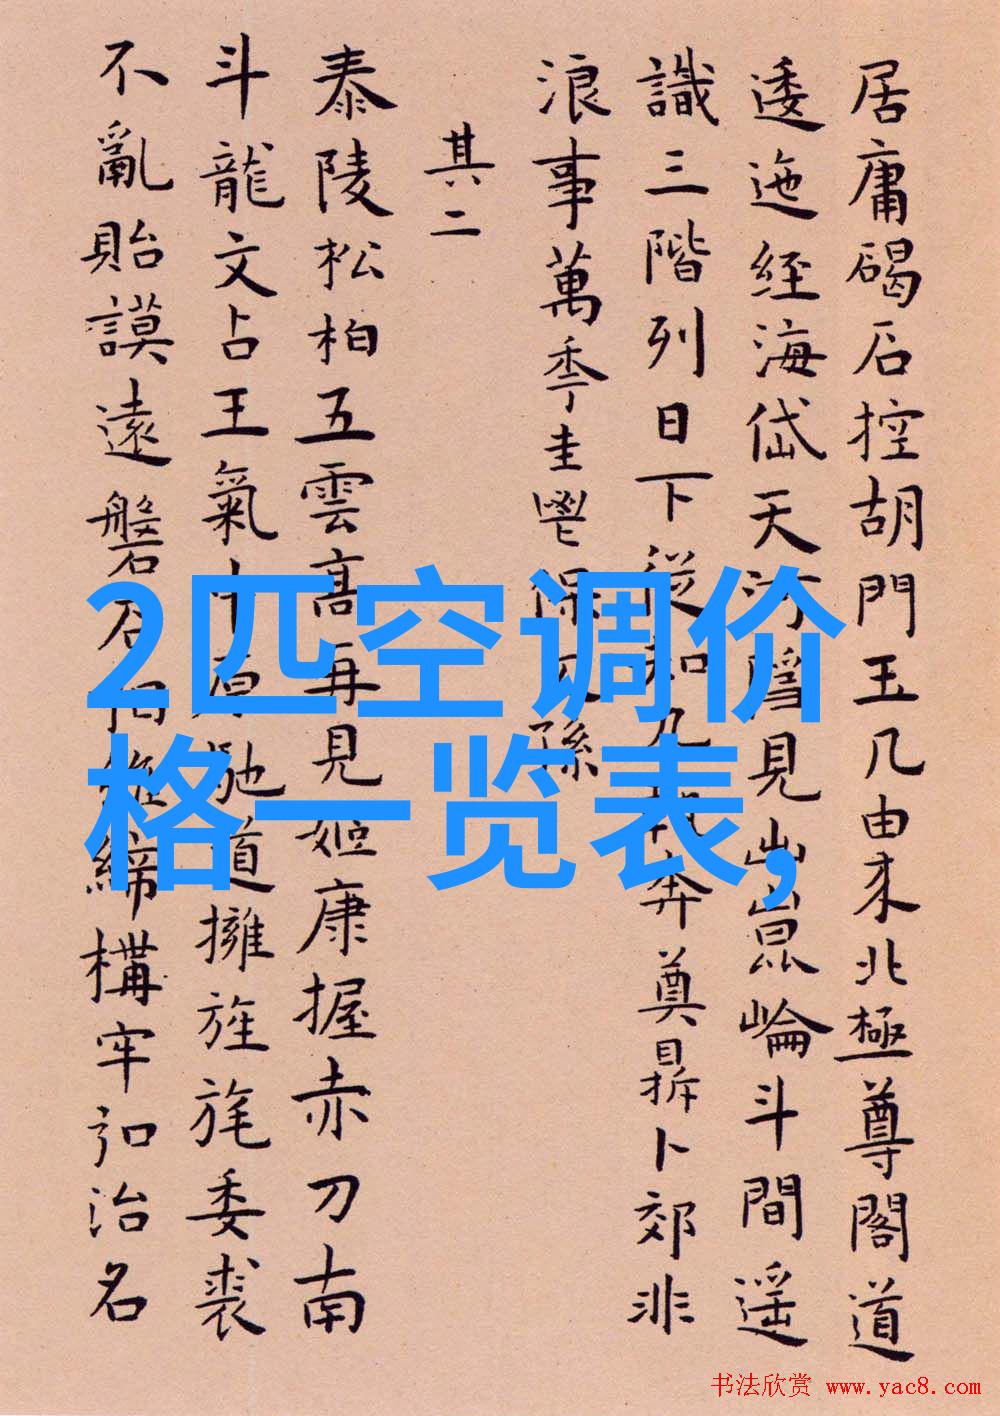 居庸碣石控胡門王几由来北極尊閣道
逶迤經海岱天
見
崑崙斗間遥
識三階列日下從知九
奔奠鼎卜郊非
浪事萬季圭鬯保
孫
其二
泰陵松柏五雲高再見姬康握赤刀南
斗龍文占王氣十
馳道擁旌旄委裘
不亂貽謨遠磐石
締構牢
治名
2匹空调价
格一览表,
书法欣赏 www.yac8.com